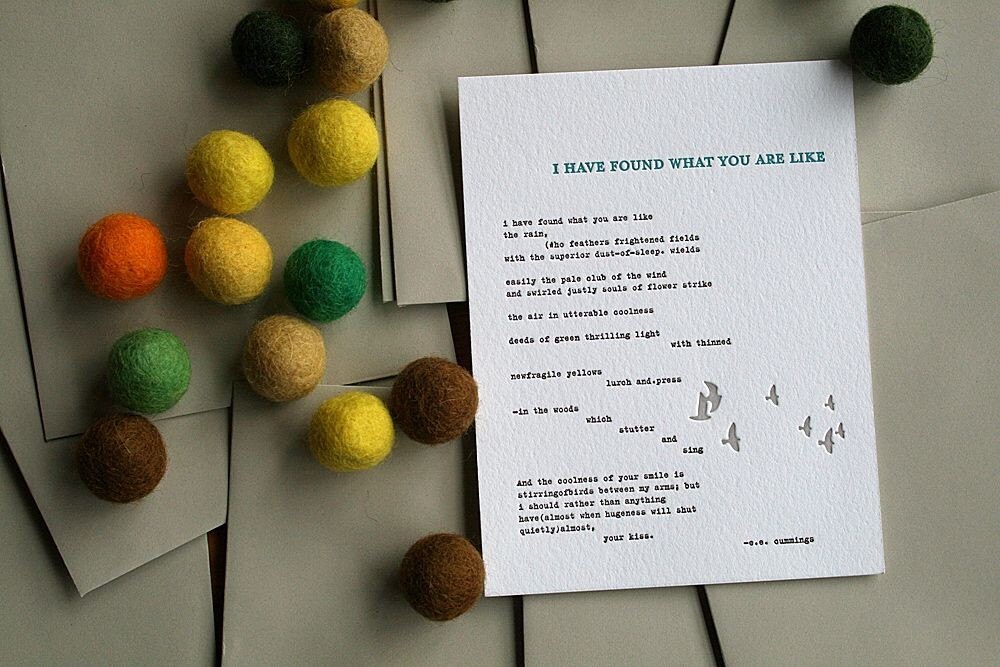 I HAVE FOUND WHAT YOU ARE LIKE
i have found what you are like
the rain,
(who feathers frightened fields
with the superior dust-of-sleep. wields
easily the pale club of the wind
and swirled justly souls of flower strike
the air in utterable coolness
deeds of green thrilling light
with thinned
newfragile yellows
lurch and.press
-in the woods
which
stutter
and
sing
And the coolness of your smile is
stirringofbirds between my arms; but
i should rather than anything
have(almost when hugeness will shut
quietly)almost,
your kiss.
-e.e. cummings